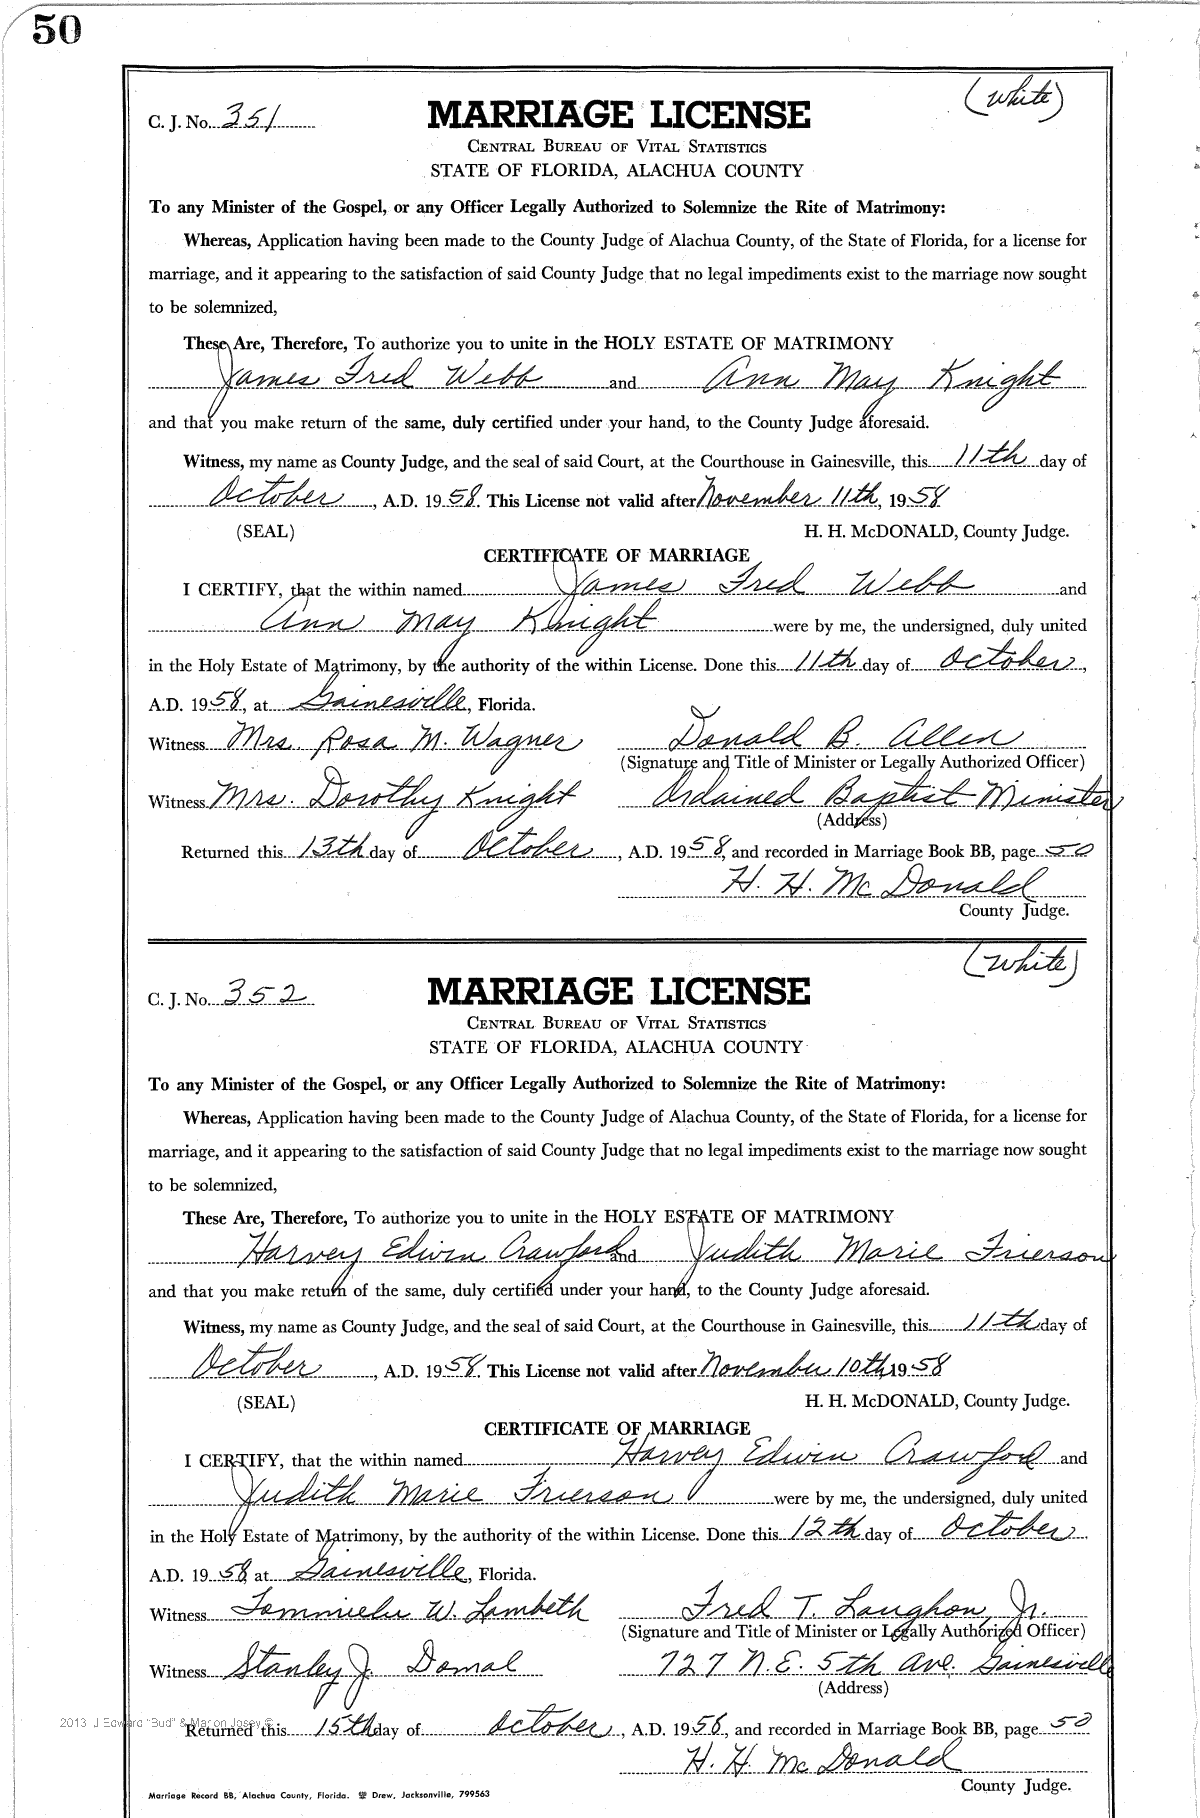 50
(White)
C. J. No. 351
MARRIAGE LICENSE
CENTRAL BUREAU OF VITAL STATISTICS
STATE OF FLORIDA, ALACHUA COUNTY
To any Minister of the Gospel, or any Officer Legally Authorized to Solemnize the Rite of Matrimony:
Whereas, Application having been made to the County Judge of Alachua County, of the State of Florida, for a license for
marriage, and it appearing to the satisfaction of said County Judge that no legal impediments exist to the marriage now sought
to be solemnized,
These Are, Therefore, To authorize you to unite in the HOLY ESTATE OF MATRIMONY
James Fred Webb and Ann May Knight
and that you make return of the same, duly certified under your hand, to the County Judge aforesaid.
Witness, my name as County Judge, and the seal of said Court, at the Courthouse in Gainesville, this 11th day of
October, A.D. 1958. This License not valid after November 11th, 1958
(SEAL) H. H. McDONALD, County Judge.
CERTIFICATE OF MARRIAGE
I CERTIFY, that the within named James Fred Webb and
Ann May Knight were by me, the undersigned, duly united
in the Holy Estate of Matrimony, by the authority of the within License. Done this 11th day of October,
A.D. 1958, at Gainesville, Florida.
Witness Mrs. Rosa M. Wagner Donald B. Allen
(Signature and Title of Minister or Legally Authorized Officer)
Witness Mrs. Dorothy Knight Ordained Baptist Minister
(Address)
Returned this 13th day of October, A.D. 1958, and recorded in Marriage Book BB, page 50
H. H. McDonald
County Judge.
(White)
C. J. No. 352
MARRIAGE LICENSE
CENTRAL BUREAU OF VITAL STATISTICS
STATE OF FLORIDA, ALACHUA COUNTY
To any Minister of the Gospel, or any Officer Legally Authorized to Solemnize the Rite of Matrimony:
Whereas, Application having been made to the County Judge of Alachua County, of the State of Florida, for a license for
marriage, and it appearing to the satisfaction of said County Judge that no legal impediments exist to the marriage now sought
to be solemnized,
These Are, Therefore, To authorize you to unite in the HOLY ESTATE OF MATRIMONY
Harvey Edwin Crawford and Judith Marie Frierson
and that you make return of the same, duly certified under your hand, to the County Judge aforesaid.
Witness, my name as County Judge, and the seal of said Court, at the Courthouse in Gainesville, this 11th day of
October, A.D. 1958. This License not valid after November 10th 1958
(SEAL) H. H. McDONALD, County Judge.
CERTIFICATE OF MARRIAGE
I CERTIFY, that the within named Harvey Edwin Crawford and
Judith Marie Frierson were by me, the undersigned, duly united
in the Holy Estate of Matrimony, by the authority of the within License. Done this 12th day of October
A.D. 1958, at Gainesville, Florida.
Witness W. Lambeth Fred T. Laughon, Jr.
(Signature and Title of Minister or Legally Authorized Officer)
Witness Stanley J. Domal 727 N.E. 5th Ave. Gainesville
(Address)
2013 J Edward "Bud" & Marion Josey ©
Returned this 15th day of October, A.D. 1958, and recorded in Marriage Book BB, page 50
H. H. McDonald
County Judge.
Marriage Record BB, Alachua County, Florida. Drew, Jacksonville, 799563